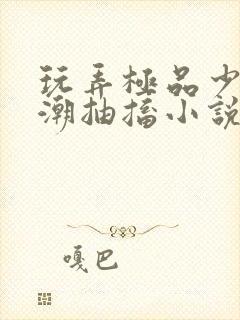 玩弄極品少
潮抽搐小說
嘎巴